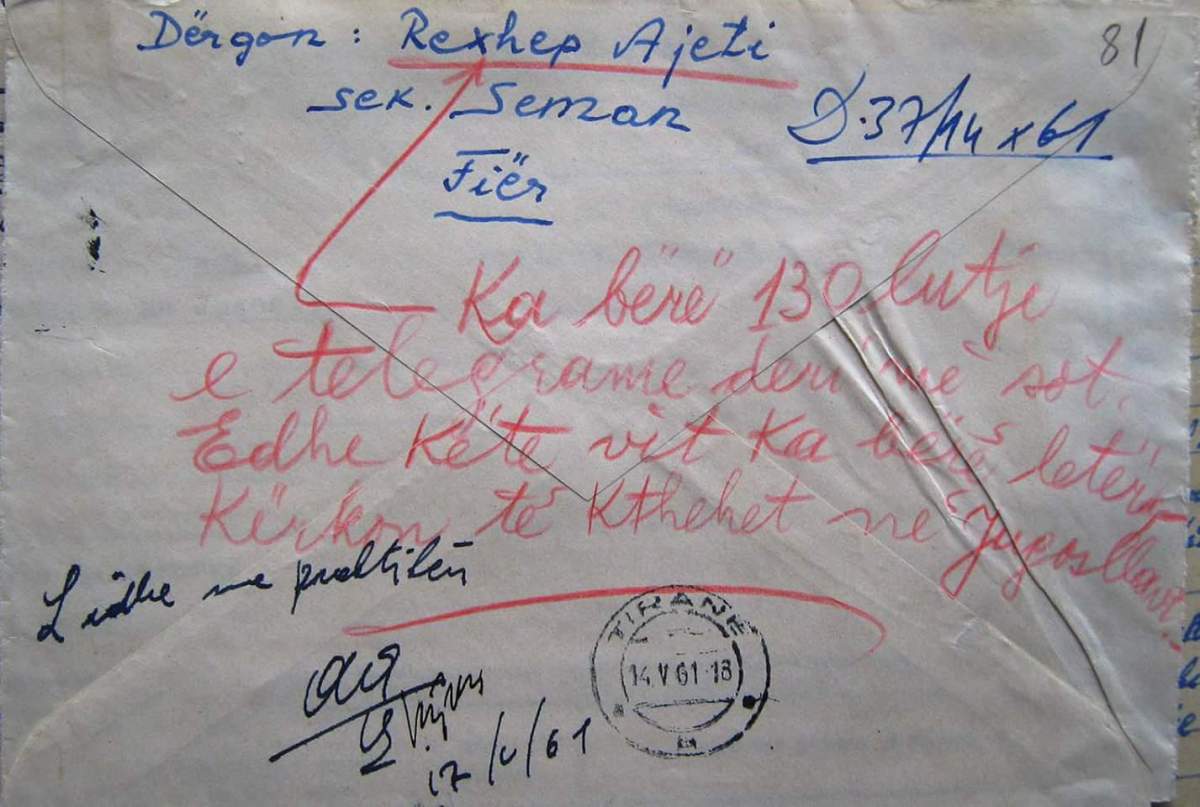 81
Dërgon: Rexhep Ajeti
sek. Seman
Fiër
D.37/14 x 61
Ka bërë 130 lutje
e telegrame deri më sot.
Edhe këtë vit ka bërë letër
Kërkon të kthehet në Jugosllavi.
Lidhe me praktikën
17/V/61
TIRANË
14.V.61-18